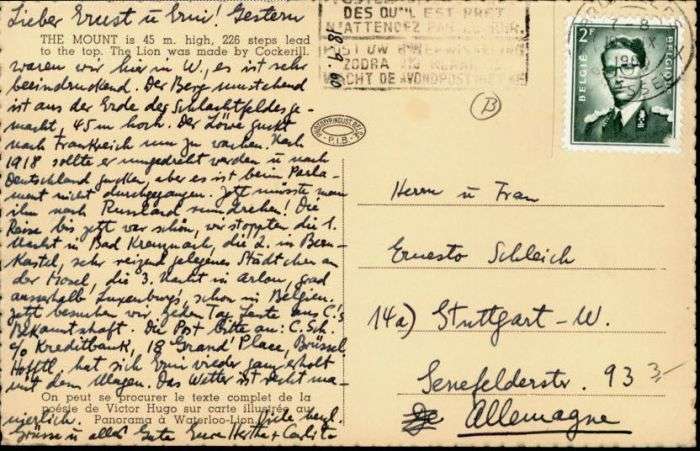 Lieber Ernst u Erni! Gestern
THE MOUNT is 45 m. high, 226 steps lead
to the top. The Lion was made by Cockerill.
waren wir hier in W., es ist sehr
beeindruckend. Der Berg umstehend
ist aus der Erde des Schlachtfeldes ge-
macht, 45 m hoch. Der Löwe guckt
nach Frankreich um zu wachen. Nach
1918 sollte er umgedreht werden u nach
Deutschland gucken, aber es ist beim Parla-
ment nicht durchgegangen. Jetzt müsste man
ihn nach Russland rumdrehen! Die
Reise bis jetzt war schön, wir stoppten die 1.
Nacht in Bad Kreuznach, die 2. in Bern-
kastel, sehr reizend gelegenes Städtchen an
der Mosel, die 3. Nacht in Arlon, grad
ausserhalb Luxenburgs, schon in Belgien.
Jetzt besuchen wir jeden Tag Leute aus C.'s
Bekanntschaft. Die Post bitte an: C. Sch.
c/o Kreditbank, 18 Grand' Place, Brüssel
Hofftl. hat sich Erni wieder ganz erholt
mit dem Magen. Das Wetter ist recht ma-
On peut se procurer le texte complet de la
poésie de Victor Hugo sur carte illustrée au
Panorama à Waterloo-Lion.
nierlich. Viele herzl.
Grüsse u alles Gute Eure Hertha + Carlito
PHOTOTYPINDUST. BELGE
P.I.B.
DES QU'IL EST PRET
N'ATTENDEZ PAS
POST UW
ZODRA HIJ KLAAR IS
WACHT DE AVONDPOST NIET AF
18.9.60
7-8
BELGIE
BELGIQUE
2F
B
Herrn u Frau
Ernesto Schleich
14a) Stuttgart-W.
Senefelderstr. 93
Allemagne